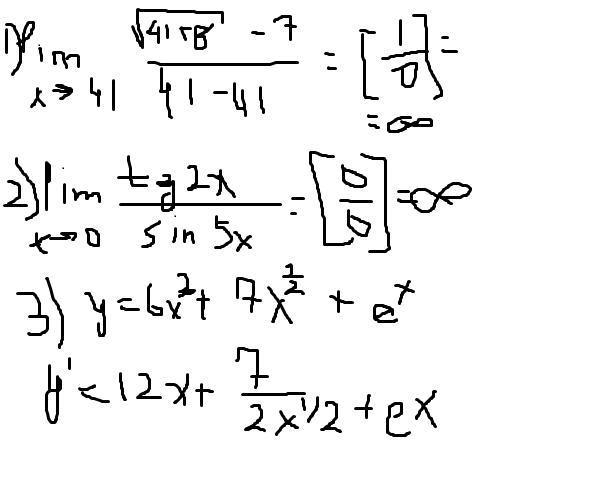 1) lim x→41 (√(41+8) - 7)/(41-41) = [1/0] =
= ∞
2) lim x→0 tg2x/sin5x = [0/0] = ∞
3) y = 6x^2 + 7x^(1/2) + e^x
y' = 12x + 7/(2x^1/2) + ex